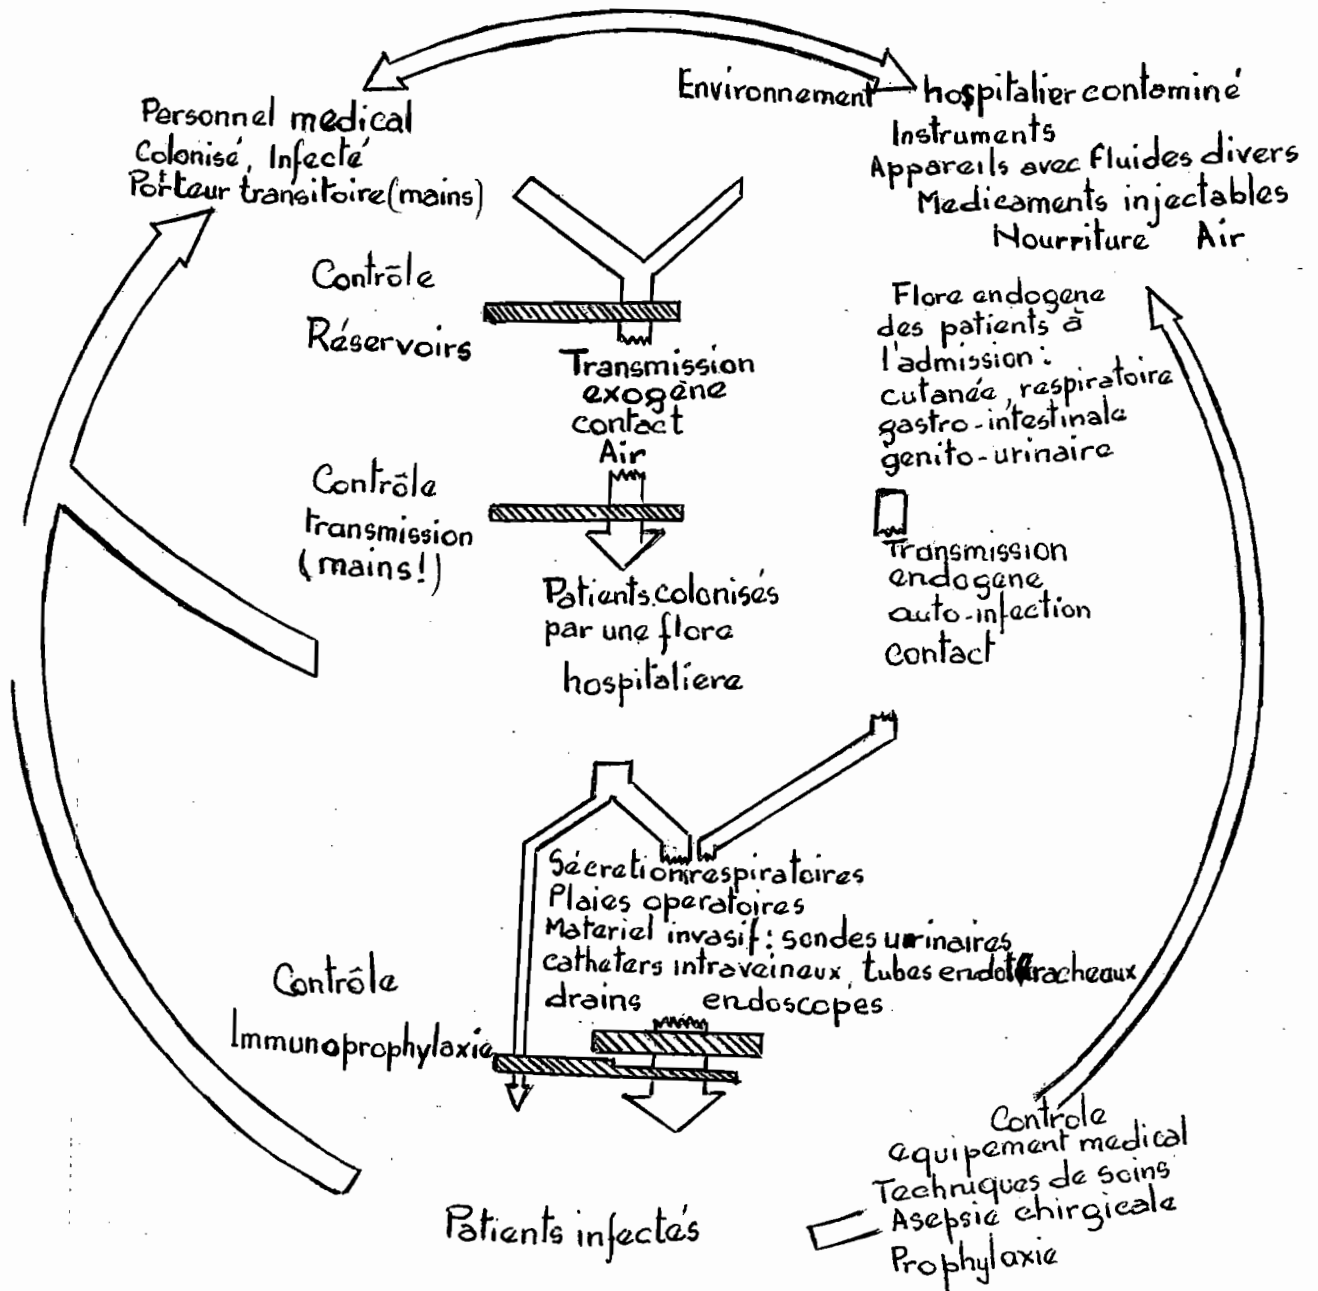 Personnel medical
Colonisé, Infecté
Porteur transitoire (mains)
Environnement hospitalier contaminé
Instruments
Appareils avec fluides divers
Medicaments injectables
Nourriture Air
Contrôle
Réservoirs
Transmission
exogène
contact
Air
Flore endogene
des patients à
l'admission :
cutanée, respiratoire
gastro-intestinale
genito-urinaire
Contrôle
transmission
(mains!)
Patients colonisés
par une flore
hospitaliere
Transmission
endogene
auto-infection
contact
Sécretions respiratoires
Plaies operatoires
Materiel invasif : sondes urinaires
catheters intraveineux, tubes endotracheaux
drains endoscopes
Contrôle
Immunoprophylaxie
Patients infectés
Contrôle
equipement medical
Techniques de soins
Asepsie chirgicale
Prophylaxie